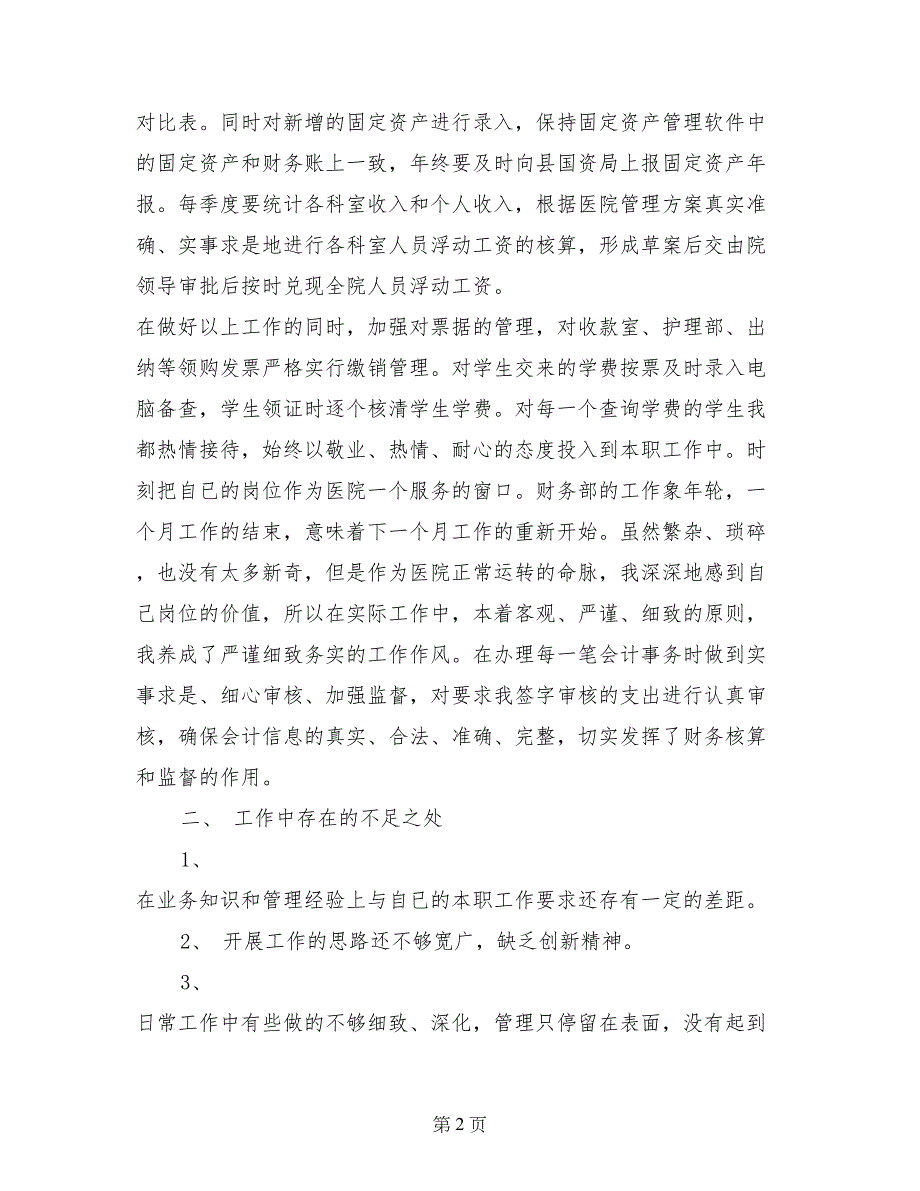 对比表。同时对新增的固定资产进行录入，保持固定资产管理软件中
的固定资产和财务账上一致，年终要及时向县国资局上报固定资产年
报。每季度要统计各科室收入和个人收入，根据医院管理方案真实准
确、实事求是地进行各科室人员浮动工资的核算，形成草案后交由院
领导审批后按时兑现全院人员浮动工资。
在做好以上工作的同时，加强对票据的管理，对收款室、护理部、出
纳等领购发票严格实行缴销管理。对学生交来的学费按票及时录入电
脑备查，学生领证时逐个核清学生学费。对每一个查询学费的学生我
都热情接待，始终以敬业、热情、耐心的态度投入到本职工作中。时
刻把自已的岗位作为医院一个服务的窗口。财务部的工作象年轮，一
个月工作的结束，意味着下一个月工作的重新开始。虽然繁杂、琐碎
，也没有太多新奇，但是作为医院正常运转的命脉，我深深地感到自
己岗位的价值，所以在实际工作中，本着客观、严谨、细致的原则，
我养成了严谨细致务实的工作作风。在办理每一笔会计事务时做到实
事求是、细心审核、加强监督，对要求我签字审核的支出进行认真审
核，确保会计信息的真实、合法、准确、完整，切实发挥了财务核算
和监督的作用。
二、 工作中存在的不足之处
1、
在业务知识和管理经验上与自已的本职工作要求还存有一定的差距。
2、 开展工作的思路还不够宽广，缺乏创新精神。
3、
日常工作中有些做的不够细致、深化，管理只停留在表面，没有起到
第 2 页